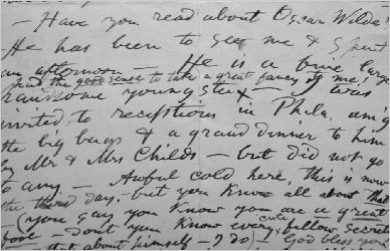 — Have you read about Oscar Wilde?
He has been to see me & spent
an afternoon — He is a fine large
had the good sense to take a great fancy to me!
handsome youngster — I was
invited to receptions in Phila. am'g
the big bugs & a grand dinner to him
by Mr & Mrs Childs — but did not go
to any — Awful cold here, this is now
the third day — but you know all about that
(you say you know you are a great
fool — don't you know every cute fellow secretly
about himself — I do) God bless you